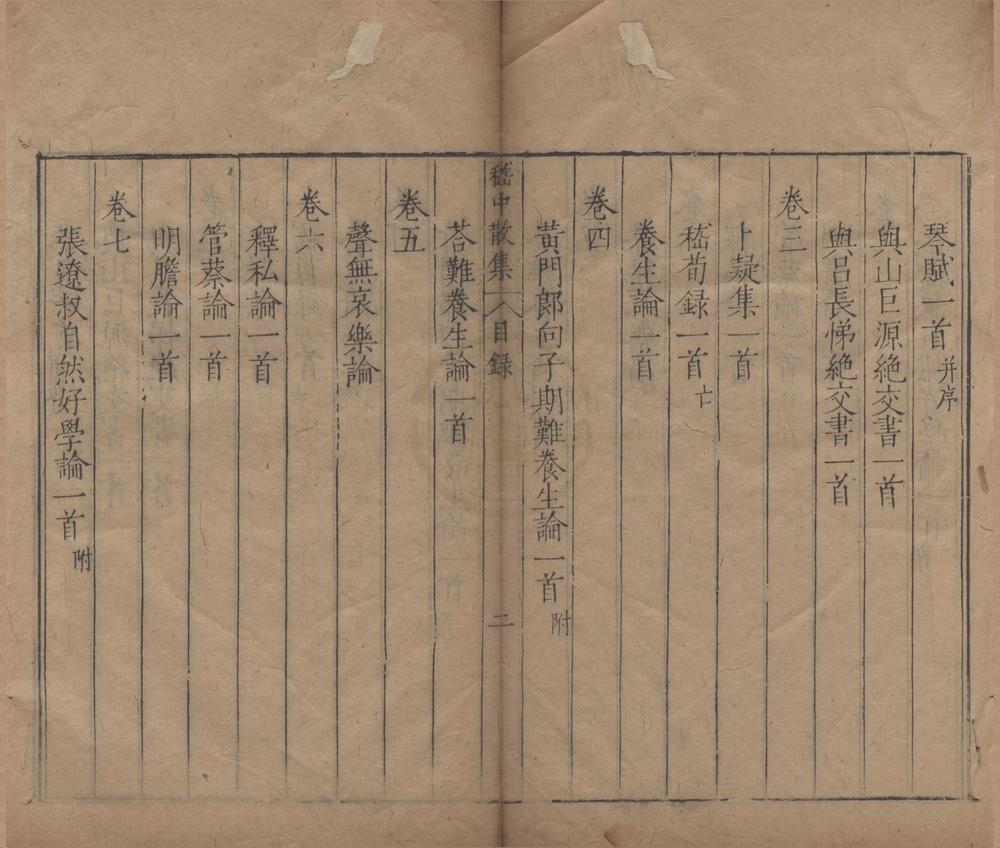 琴賦一首并序
與山巨源絕交書一首
與呂長悌絕交書一首
卷三
卜疑集一首
嵇荀録一首亡
養生論一首
卷四
黃門郎向子期難養生論一首附
嵇中散集 目録 二
荅難養生論一首
卷五
聲無哀樂論
卷六
釋私論一首
管蔡論一首
明膽論一首
卷七
張遼叔自然好學論一首附